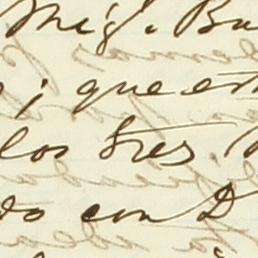 Mig. Bu
; que est
los tres.
do con D